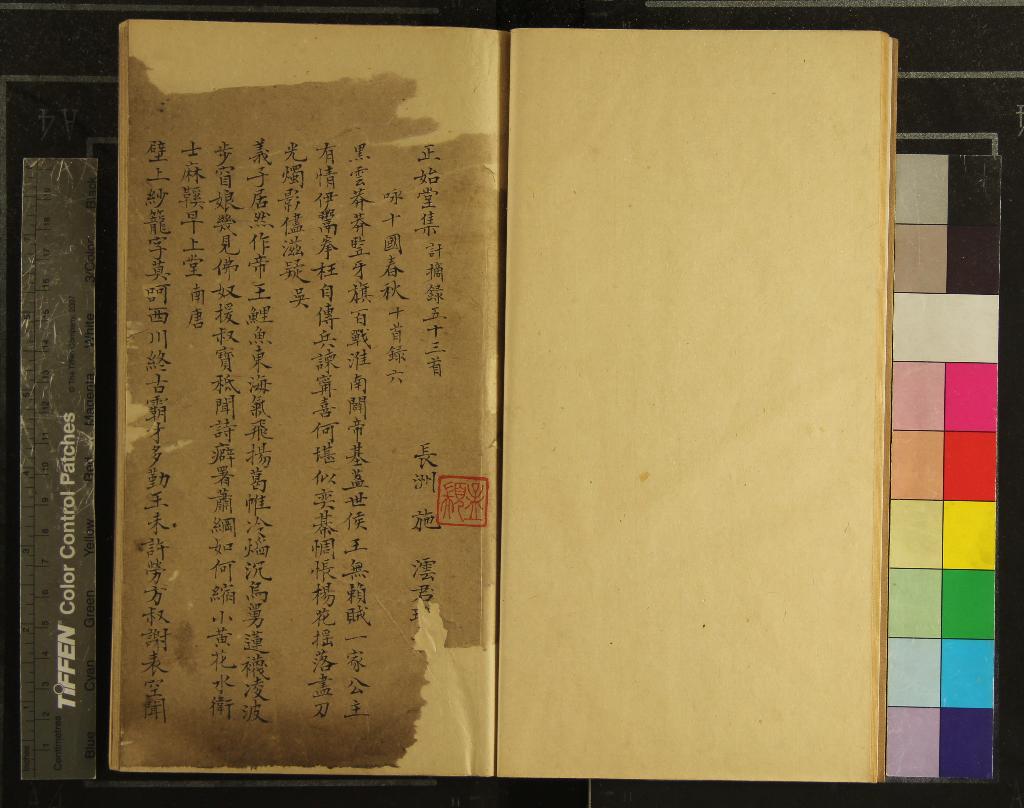 正始堂集 計摘錄五十三首
長洲 施 澐 君
咏十國春秋 十首錄六
黑雲莽莽豎牙旗百戰淮南闢帝基蓋世侯王無賴賊一家公主
有情伊鬻拳枉自傳兵諫甯喜何堪似奕棊惆悵楊花搖落盡刀
光燭影儘滋疑 吳
義子居然作帝王鯉魚東海氣飛揚葛帷冷焰沉烏舅蓮襪凌波
步窅娘幾見佛奴援叔寶秪聞詩癖署蕭綱如何縮小黃花水衛
士麻鞵早上堂 南唐
壁上紗籠字莫呵西川終古霸才多勤王未許勞方叔謝表空聞
TIFFEN Color Control Patches
© The Tiffen Company, 2007
Centimetres
Inches
Blue
Cyan
Green
Yellow
Red
Magenta
White
3/Color
Black
A4